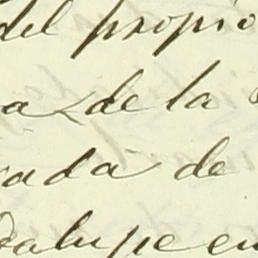 del propio
a de la
rada de
dalupe en